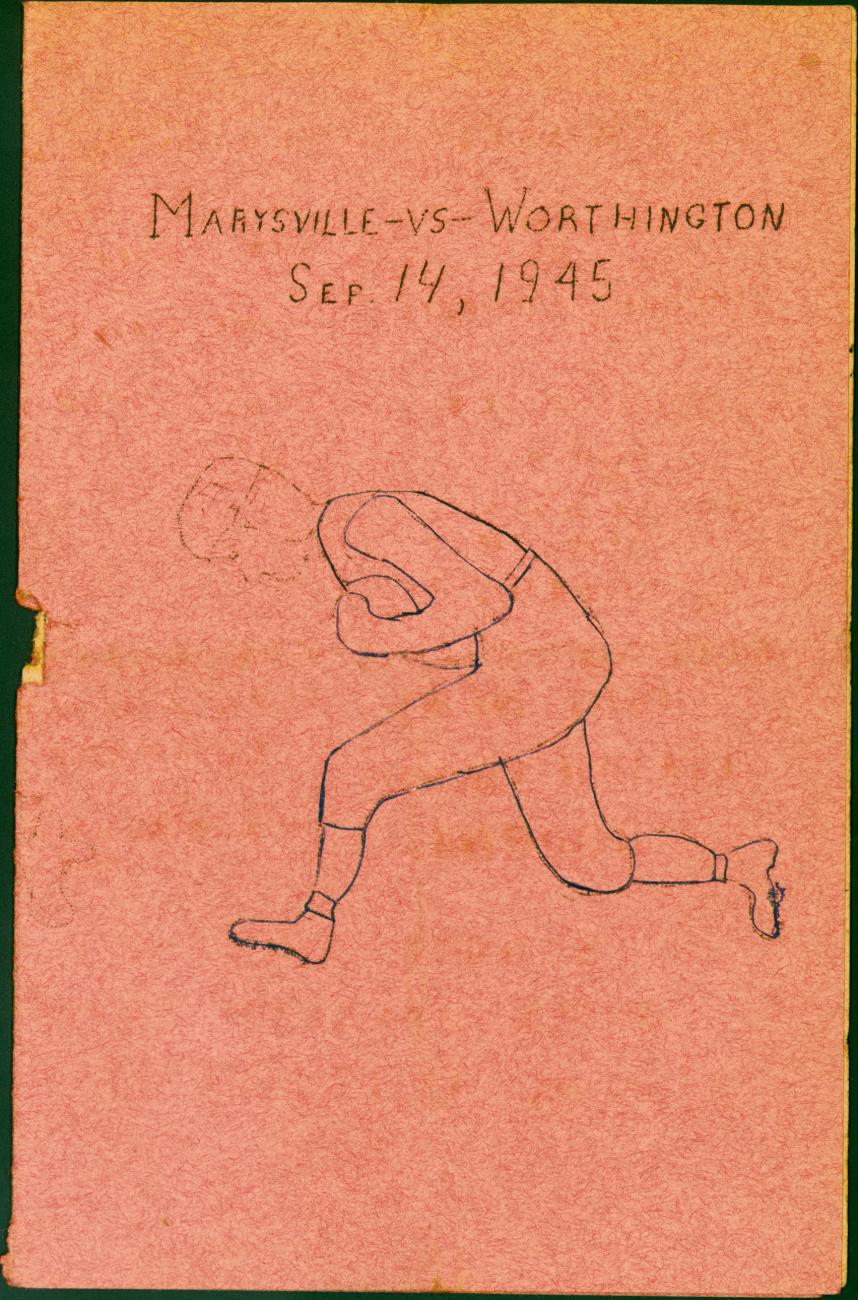 MARYSVILLE-VS-WORTHINGTON
SEP. 14, 1945